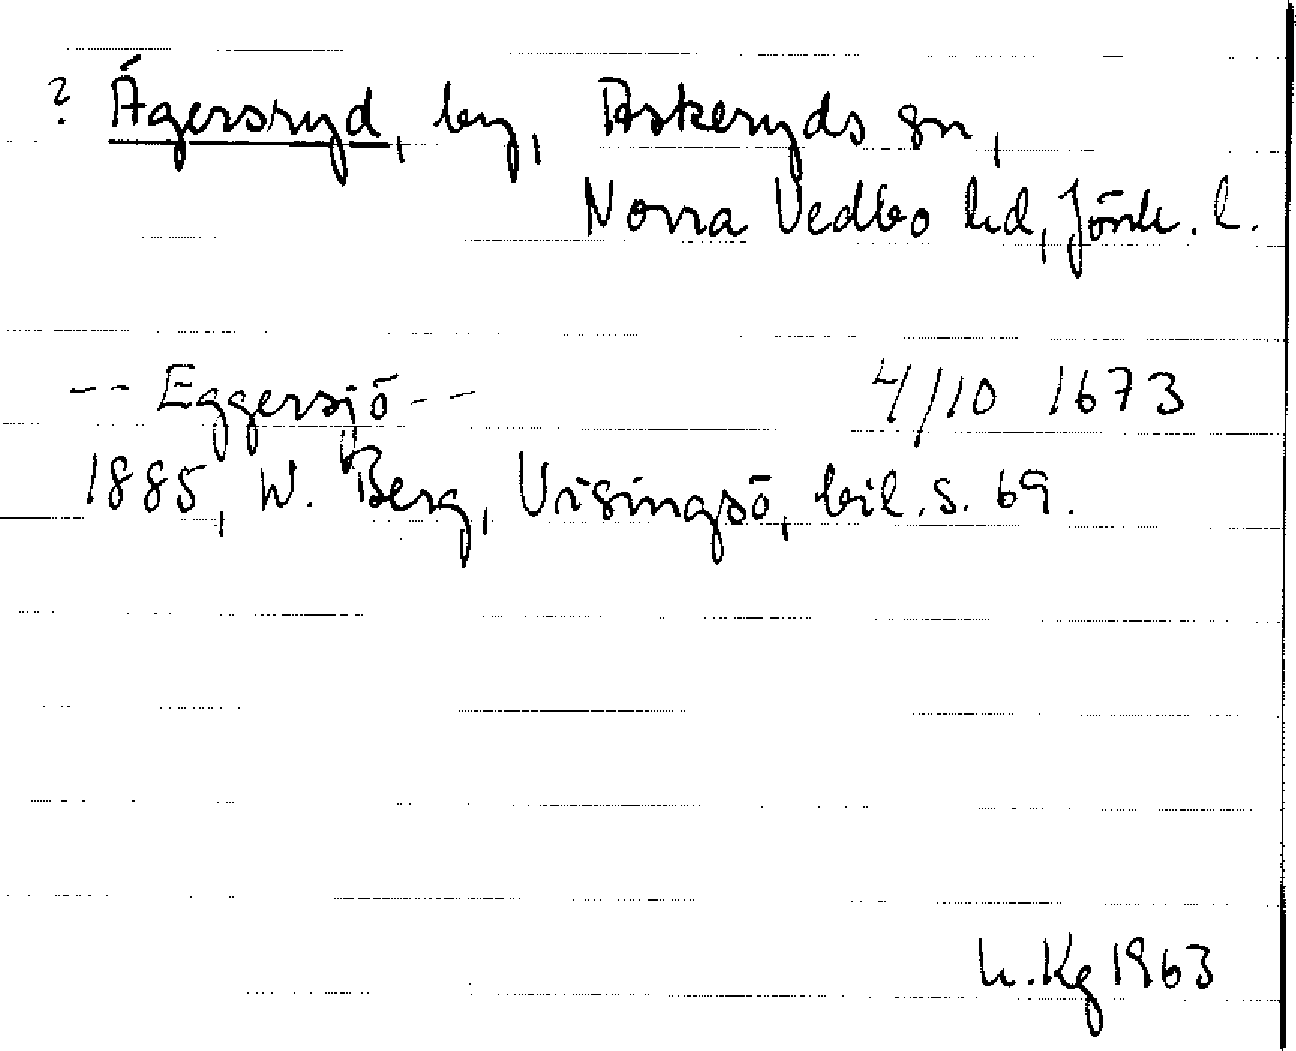 ? Ägersryd, by, Askeryds sn,
Norra Vedbo hd, Jönk. l.
-- Eggersjö -- 4/10 1673
1885, W. Berg, Visingsö, bil. s. 69.
h. Kg 1963